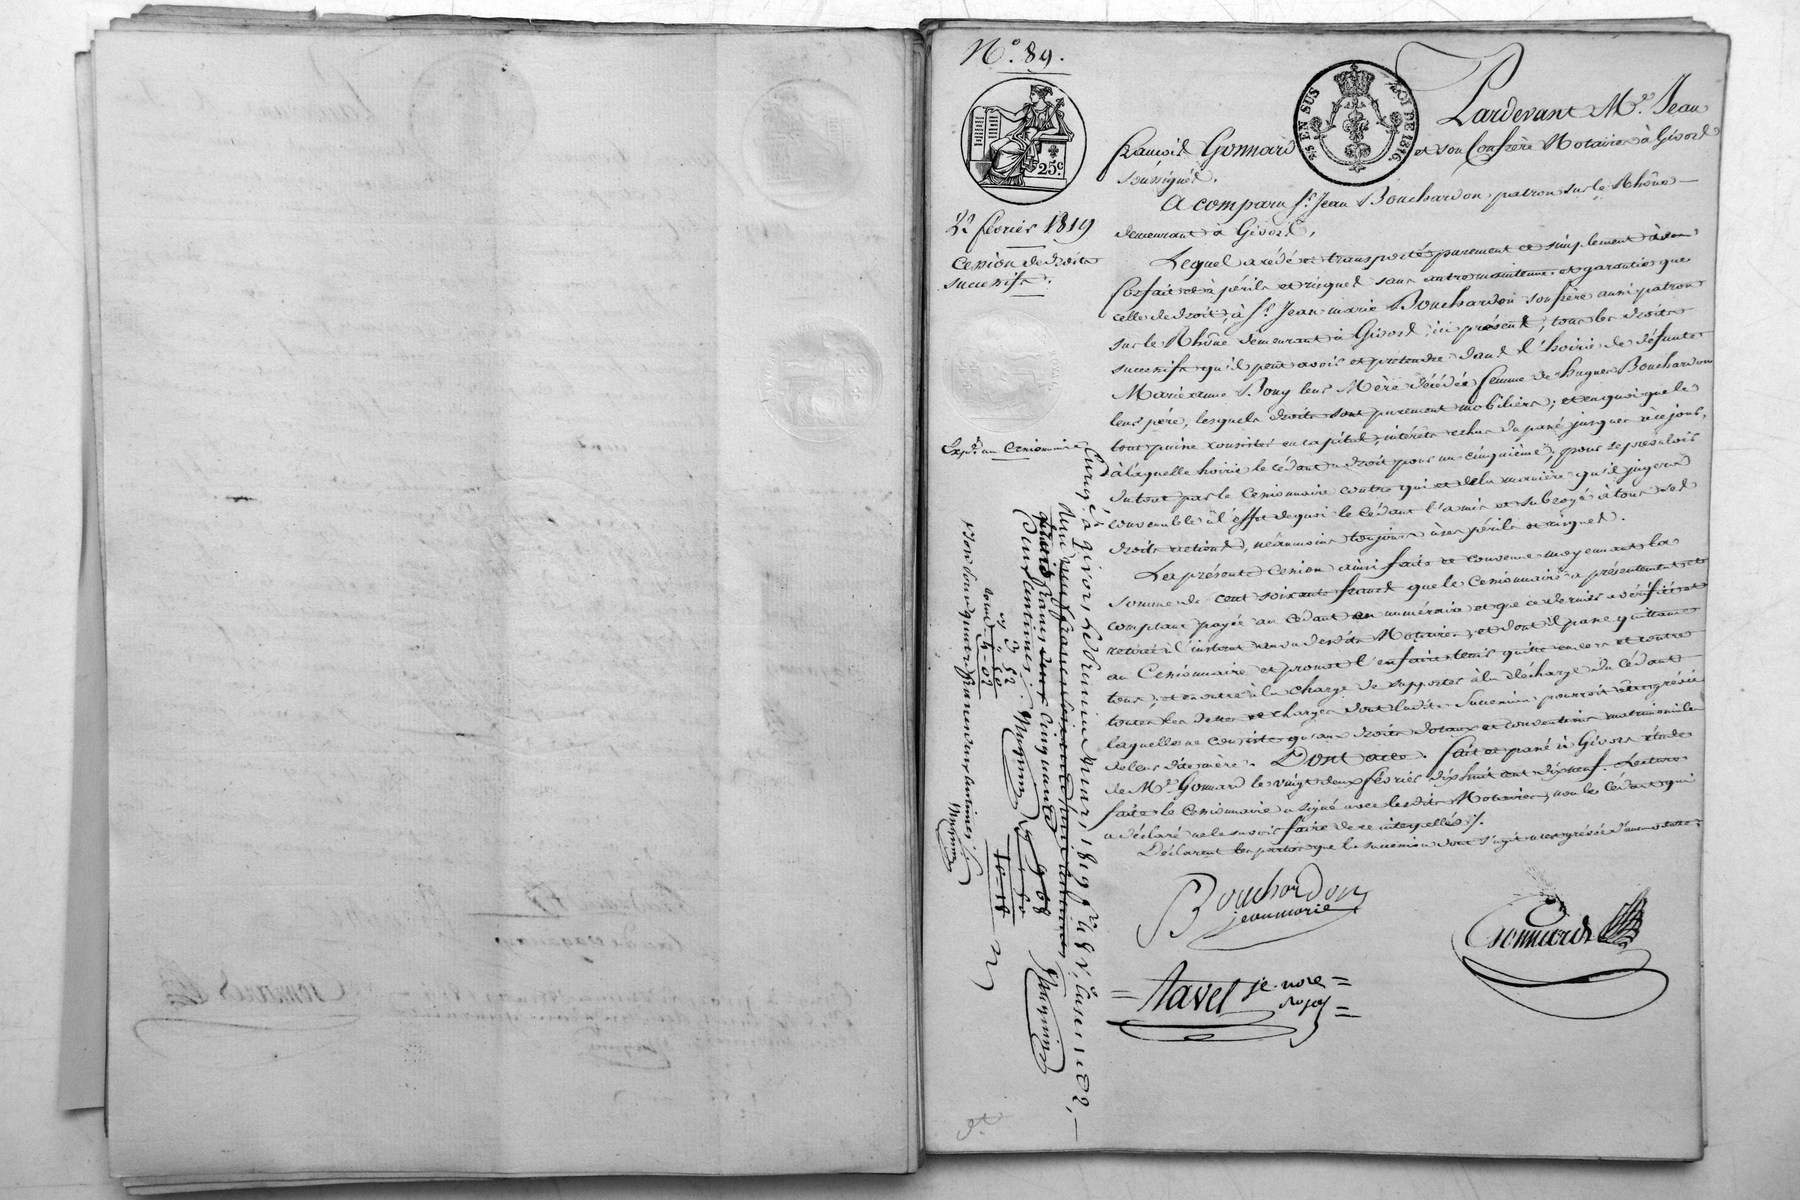 N.° 89.
25c.
S/S EN SUS
LOI DE 1816
Pardevant M.e Jean
François Gonnard et son Confrère Notaires à Givors
soussignés,
22 février 1819
Cession de droits
successifs.
A comparu s.r Jean Bouchardon, patron sur le Rhône
demeurant à Givors,
Lequel a cédé et transporté purement et simplement à son
forfait et à périls et risques sans autre maintenue et garantie que
celle de droit, à s.r Jean marie Bouchardon son frère aussi patron
sur le Rhône demeurant à Givors ici présent, tous les droits
successifs qu'il peut avoir et prétendre dans l'hoirie de défunte
Marieanne Bony leur Mère décédée femme de hugues Bouchardon
leur père, lesquels droits sont purement mobiliers, et en quoi que le
tout puisse consister en capital, intérêts échus du passé jusques à ce jour,
à laquelle hoirie le cédant a droit pour un cinquième, pour se prévaloir
du tout par le Cessionnaire contre qui et de la manière qu'il jugera
convenable à l'effet de quoi le cédant l'a mis et subrogé à tous ses
droits actions, néanmoins toujours à ses périls et risques.
La présente Cession ainsi faite et convenue moyennant la
somme de cent soixante francs que le Cessionnaire a présentement et
comptant payée au cédant en numéraire et que ce dernier a vérifiée et
retirée à l'instant au vu desdits Notaires, et dont il passe quittance
au Cessionnaire et promet l'en faire tenir quitte envers et contre
tous, et en outre à la charge de supporter à la décharge du cédant
toutes les dettes et charges dont ladite succession pourroit être grévée
laquelle ne consiste qu'aux droits dotaux et conventions matrimoniales
de leur dite mère. Dont acte. fait et passé à Givors étude
de M.e Gonnard le vingt deux février dix huit cent dix neuf. Lecture
faite le Cessionnaire a signé avec lesdits Notaires, non le cédant qui
a déclaré ne le savoir faire de ce interpellé./.
Déclarent les parties que la succession dont s'agit n'est grévée d'aucune dette.
Exp.on au Cessionnaire
Enregé à givors le premier mars 1819 f.o
Bouchardon
jeanmarie
Gonnard
Tavel